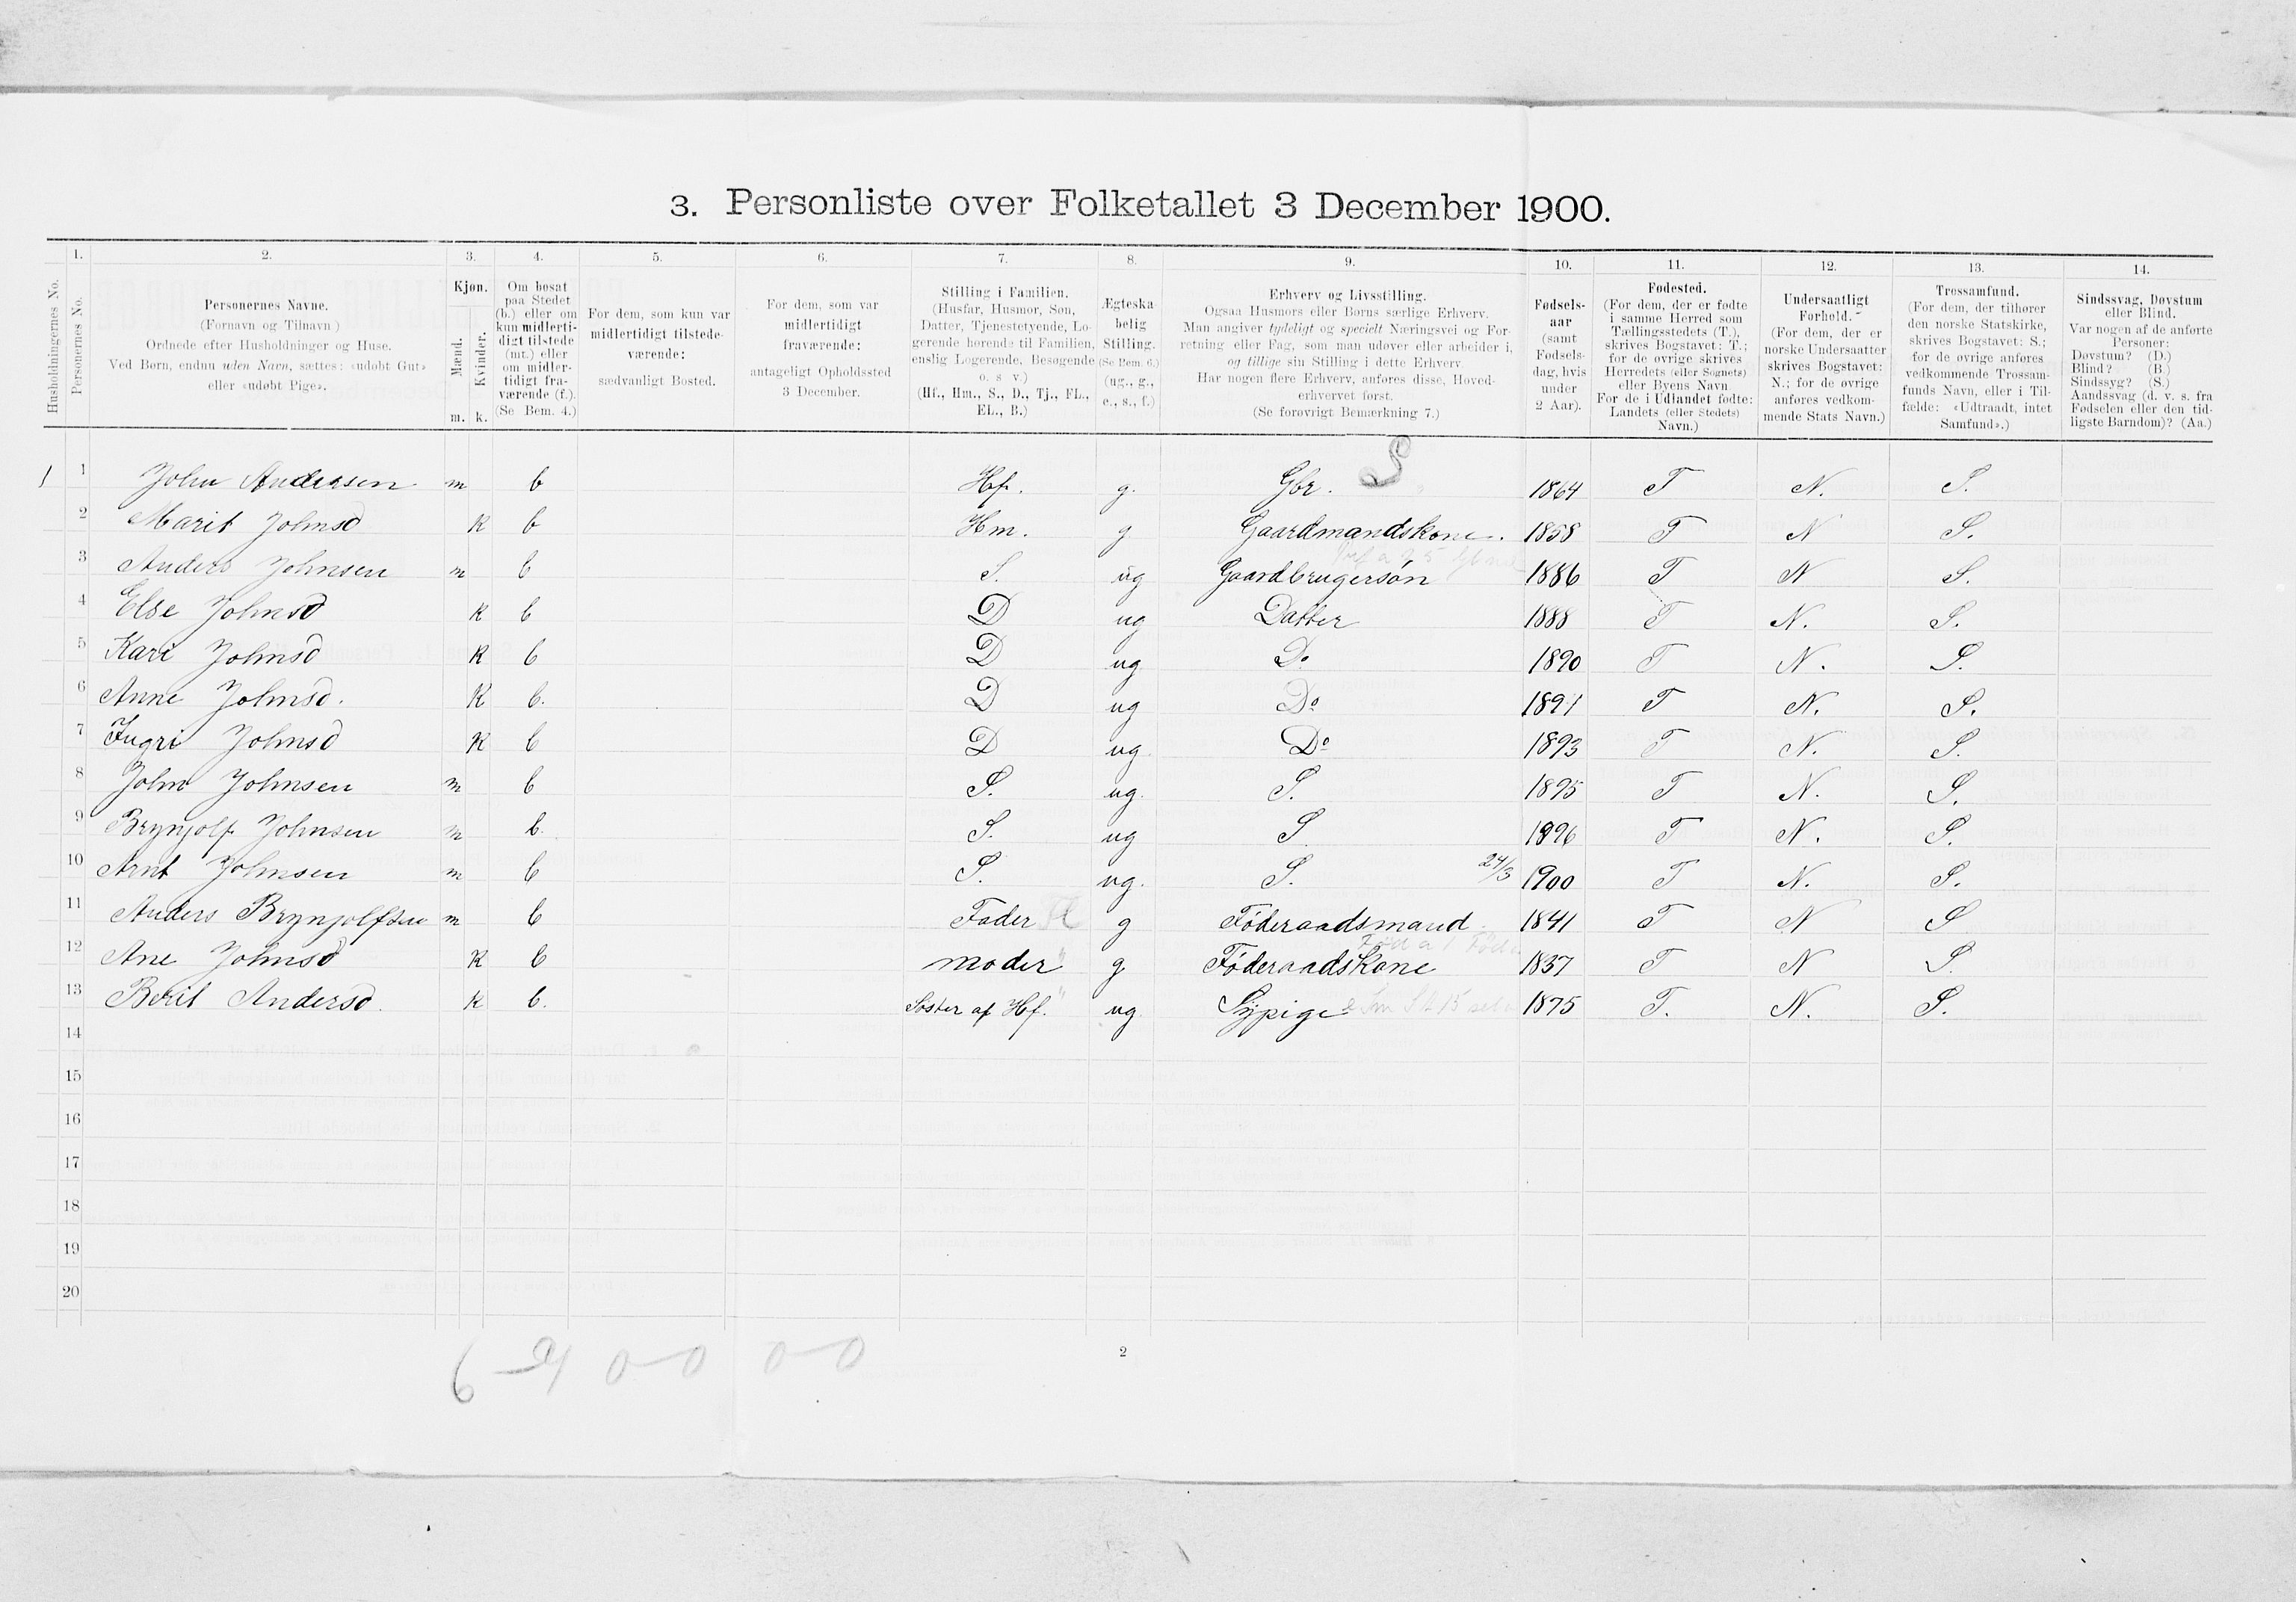 3. Personliste over Folketallet 3 December 1900.
1. 2. 3. 4. 5. 6. 7. 8. 9. 10. 11. 12. 13. 14.
Husholdningernes No.
Personernes No.
Personernes Navne.
(Fornavn og Tilnavn.)
Ordnede efter Husholdninger og Huse.
Ved Børn, endnu uden Navn, sættes: «udøbt Gut»
eller «udøbt Pige».
Kjøn.
Mænd.
Kvinder.
m. k.
Om bosat
paa Stedet
(b.) eller om
kun midlerti-
digt tilstede
(mt.) eller
om midler-
tidigt fra-
værende (f.).
(Se Bem. 4.)
For dem, som kun var
midlertidigt tilstede-
værende:
sædvanligt Bosted.
For dem, som var
midlertidigt
fraværende:
antageligt Opholdssted
3 December.
Stilling i Familien.
(Husfar, Husmor, Søn,
Datter, Tjenestetyende, Lo-
gerende hørende til Familien,
enslig Logerende, Besøgende
o. s. v.)
(Hf., Hm., S., D., Tj., FL.,
EL., B.)
Ægteska-
belig
Stilling.
(Se Bem. 6.)
(ug., g.,
e., s., f.)
Erhverv og Livsstilling.
Ogsaa Husmors eller Børns særlige Erhverv.
Man angiver tydeligt og specielt Næringsvei og For-
retning eller Fag, som man udøver eller arbeider i,
og tillige sin Stilling i dette Erhverv.
Har nogen flere Erhverv, anføres disse, Hoved-
erhvervet først.
(Se forøvrigt Bemærkning 7.)
Fødsels-
aar
(samt
Fødsels-
dag, hvis
under
2 Aar).
Fødested.
(For dem, der er fødte
i samme Herred som
Tællingsstedets (T.),
skrives Bogstavet: T.;
for de øvrige skrives
Herredets (eller Sognets)
eller Byens Navn.
For de i Udlandet fødte:
Landets (eller Stedets)
Navn.)
Undersaatligt
Forhold.
(For dem, der er
norske Undersaatter
skrives Bogstavet:
N.; for de øvrige
anføres vedkom-
mende Stats Navn.)
Trossamfund.
(For dem, der tilhører
den norske Statskirke,
skrives Bogstavet: S.;
for de øvrige anføres
vedkommende Trossam-
funds Navn, eller i Til-
fælde: «Udtraadt, intet
Samfund».)
Sindssvag, Døvstum
eller Blind.
Var nogen af de anførte
Personer:
Døvstum? (D.)
Blind? (B.)
Sindssyg? (S.)
Aandssvag (d. v. s. fra
Fødselen eller den tid-
ligste Barndom)? (Aa.)
S
1 1 John Andersen m b Hf. g. Gbr. 1864 T N. S.
2 Marit Johnsd K b Hm. g Gaardmandskone. 1858 T N S.
3 Anders Johnsen m b S. ug Gaardbrugersøn 1886 T N S.
4 Else Johnsd K b D ug Datter 1888 T N. S.
5 Kari Johnsd K b D ug Do 1890 T N. S.
6 Anne Johnsd. K b. D ug Do 1891 T N. S.
7 Ingri Johnsd K b D ug Do 1893 T N. S.
8 John Johnsen m b S. ug. S. 1895 T N. S.
9 Brynjolf Johnsen m b. S. ug S 1896 T N. S.
10 Arnt Johnsen m b S. ug. S. 24/3 1900 T N. S.
11 Anders Brynjolfsen m b Fader g Føderaadsmand 1841 T N S
12 Ane Johnsd K b moder g Føderaadskone 1837 T N S.
13 Berit Andersd. K b. Søster af Hf. ug Sypige 1875 T. N. S.
14
15
16
17
18
19
20
6 – 0 – 0 0 – 0
2